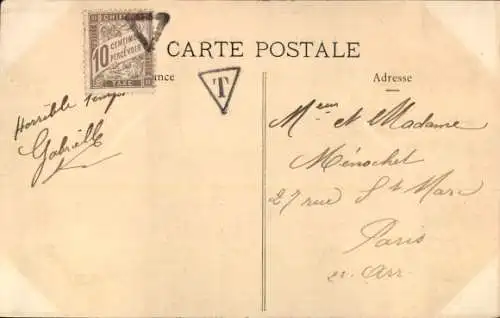 CHIFFRE
10
CENTIMES
À PERCEVOIR
TAXE
CARTE POSTALE
T
ance
Adresse
Horrible temps
Gabrielle
Mr et Madame
Ménochet
27 rue St Marc
Paris